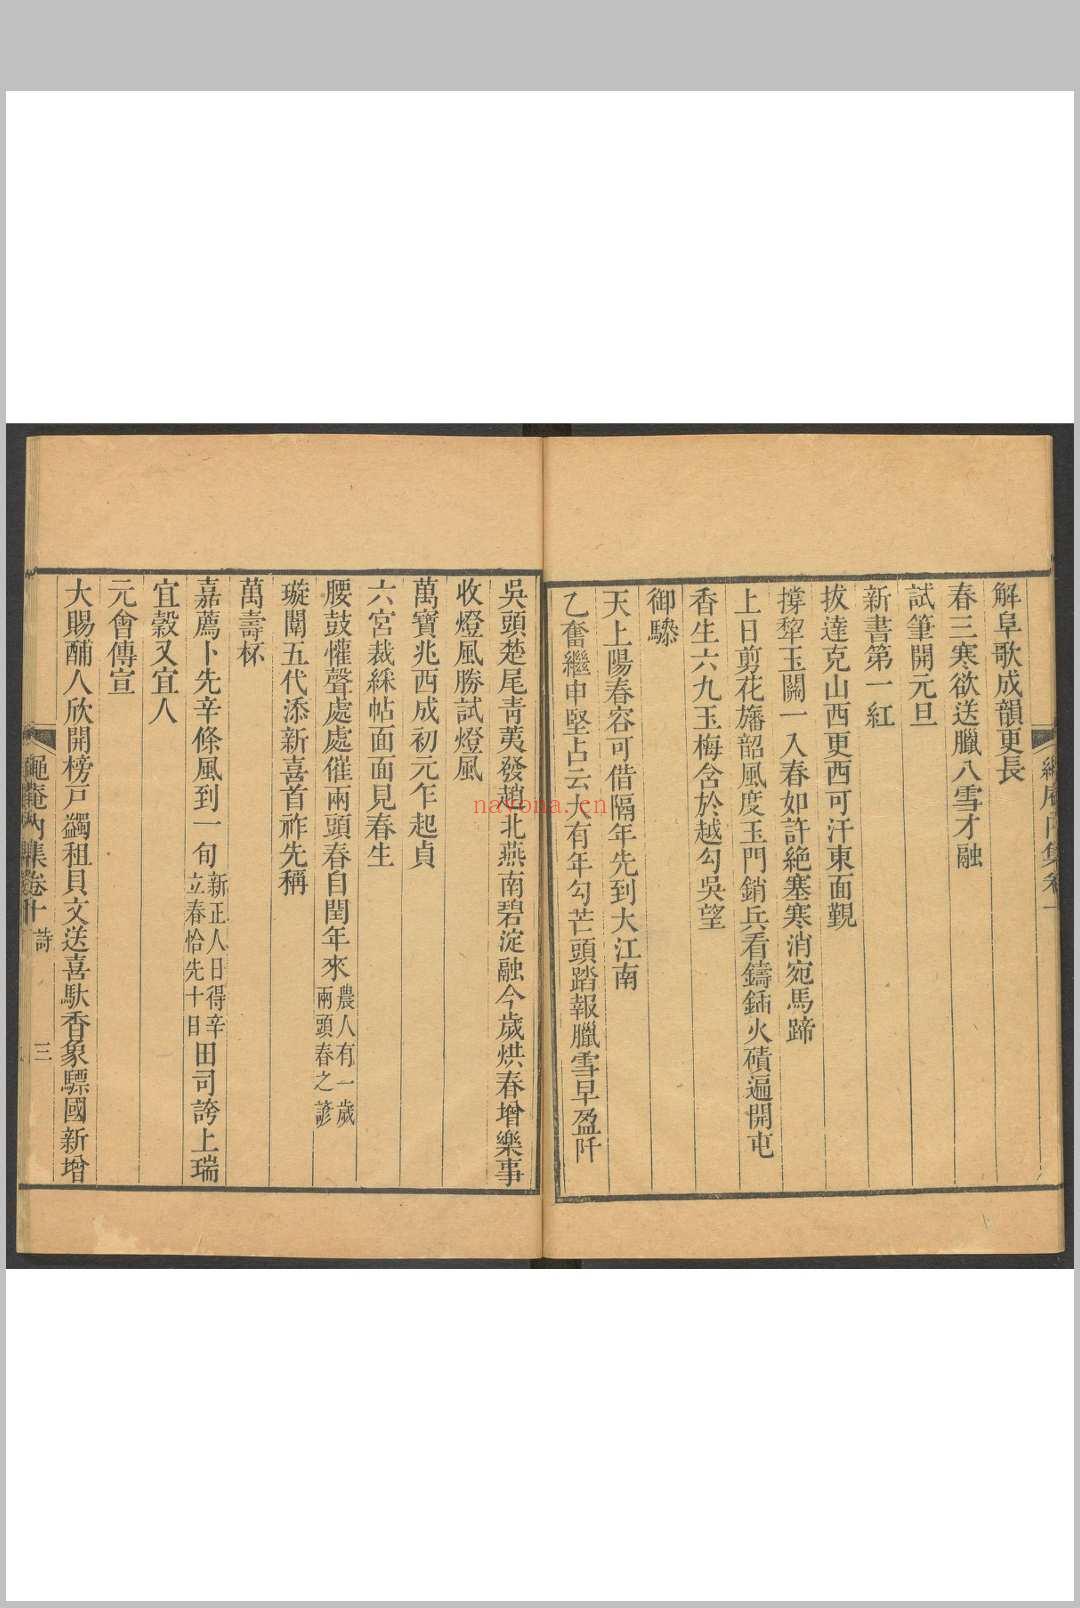 解阜歌成韻更長
春三寒欲送臘八雪才融
試筆開元旦
新書第一紅
拔達克山西更西可汗東面覲
撐犂玉關一入春如許絶塞寒消宛馬蹄
上日剪花旛韶風度玉門銷兵看鑄鍤火磧遍開屯
香生六九玉梅含於越勾吳望
御驂
天上陽春容可借隔年先到大江南
乙奮繼申堅占云大有年勾芒頭踏報臘雪早盈阡
吳頭楚尾靑荑發趙北燕南碧淀融今歲烘春增樂事
收燈風勝試燈風
萬寶兆西成初元乍起貞
六宮裁綵帖面面見春生
腰鼓懽聲處處催兩頭春自閏年來農人有一歲兩頭春之諺
璇闈五代添新喜首祚先稱
萬壽杯
嘉薦卜先辛條風到一旬新正人日得辛立春恰先十日田司誇上瑞
宜穀又宜人
元會傳宣
大賜酺人欣開榜戸蠲租貝文送喜馱香象驃國新增
繩庵內集卷十 詩 三
nayona.cn